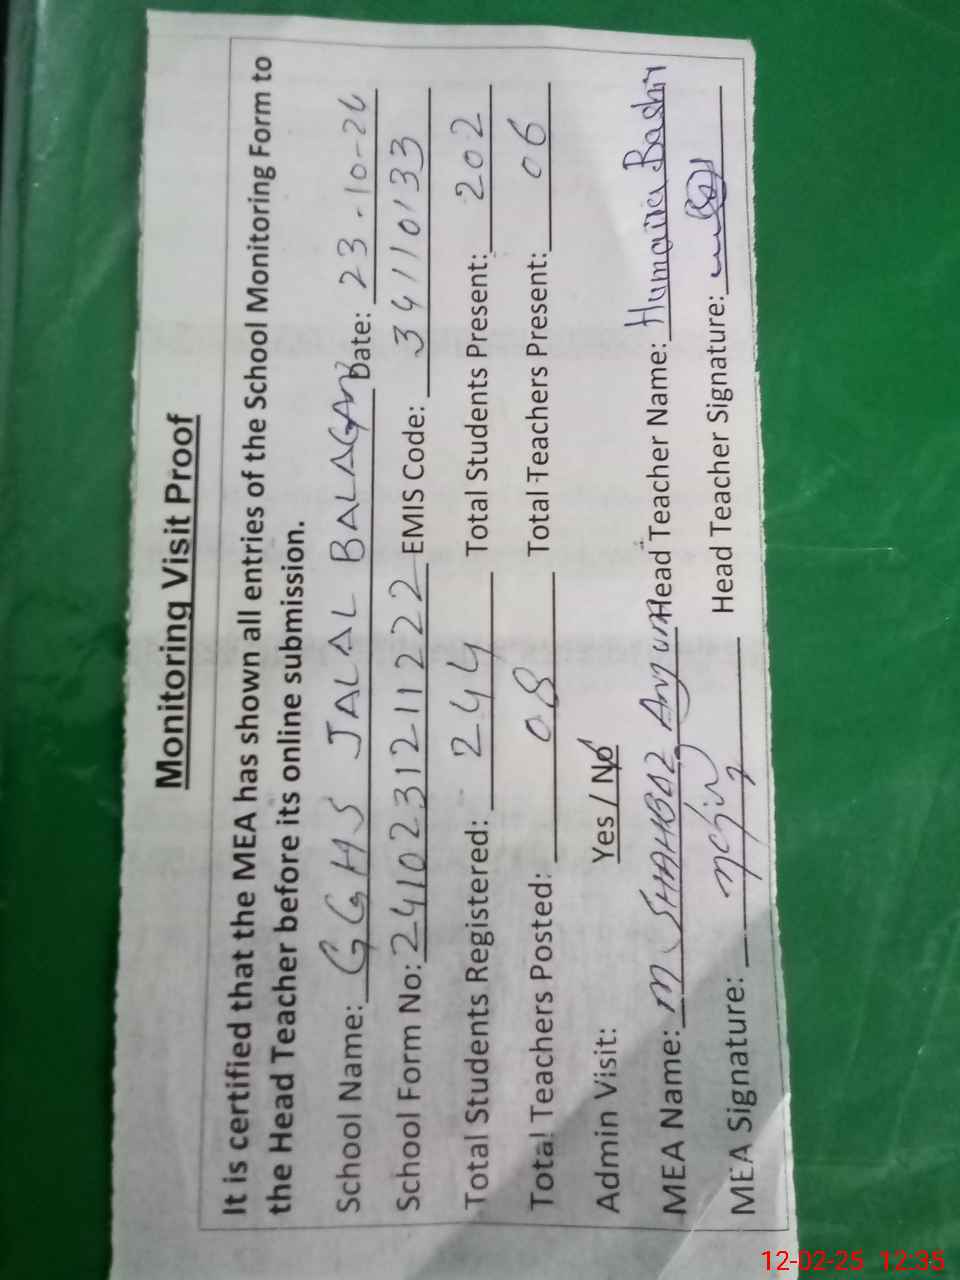 Monitoring Visit Proof
It is certified that the MEA has shown all entries of the School Monitoring Form to
the Head Teacher before its online submission.
School Name: GGHS JALAL BALAGAN Date: 23-10-24
School Form No: 2410231211222 EMIS Code: 34110133
Total Students Registered: 244 Total Students Present: 202
Total Teachers Posted: 08 Total Teachers Present: 06
Admin Visit: Yes / No
MEA Name: M SHAHBAZ Anjum Head Teacher Name: Humaira Bashir
MEA Signature: Head Teacher Signature:
12-02-25 12:35